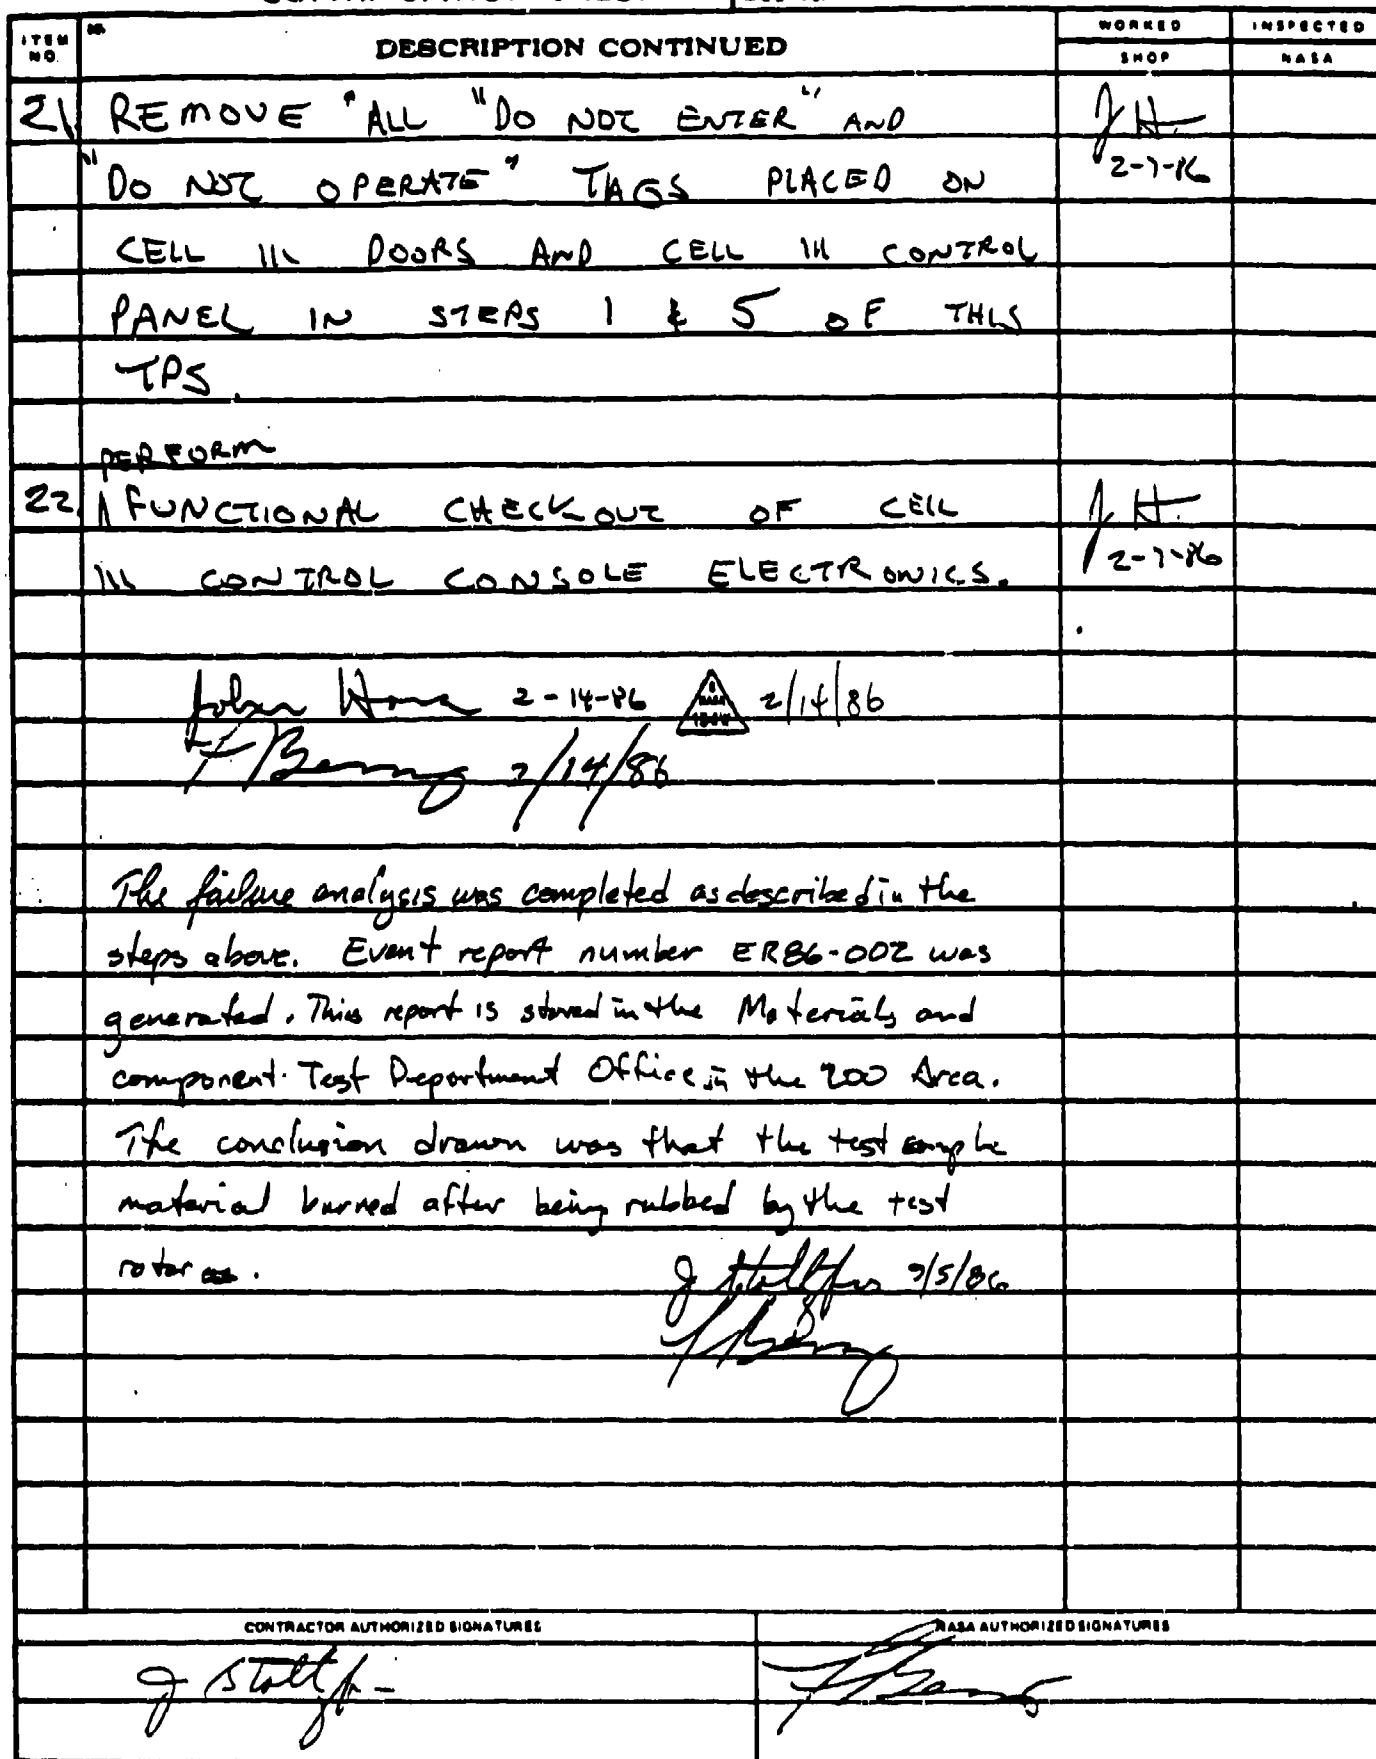 ITEM NO. DESCRIPTION CONTINUED WORKED INSPECTED
SHOP NASA
21 REMOVE "ALL "DO NOT ENTER" AND J H
"DO NOT OPERATE" TAGS PLACED ON 2-7-86
CELL III DOORS AND CELL III CONTROL
PANEL IN STEPS 1 & 5 OF THIS
TPS.
PERFORM
22 FUNCTIONAL CHECKOUT OF CELL J H.
III CONTROL CONSOLE ELECTRONICS. 2-7-86
John 2-14-86 NASA 2/14/86
2/14/86
The failure analysis was completed as described in the
steps above. Event report number ER86-002 was
generated. This report is stored in the Materials and
component Test Department Office in the 200 Area.
The conclusion drawn was that the test sample
material burned after being rubbed by the test
rotor.
J Stoltzfus /5/86
CONTRACTOR AUTHORIZED SIGNATURES NASA AUTHORIZED SIGNATURES